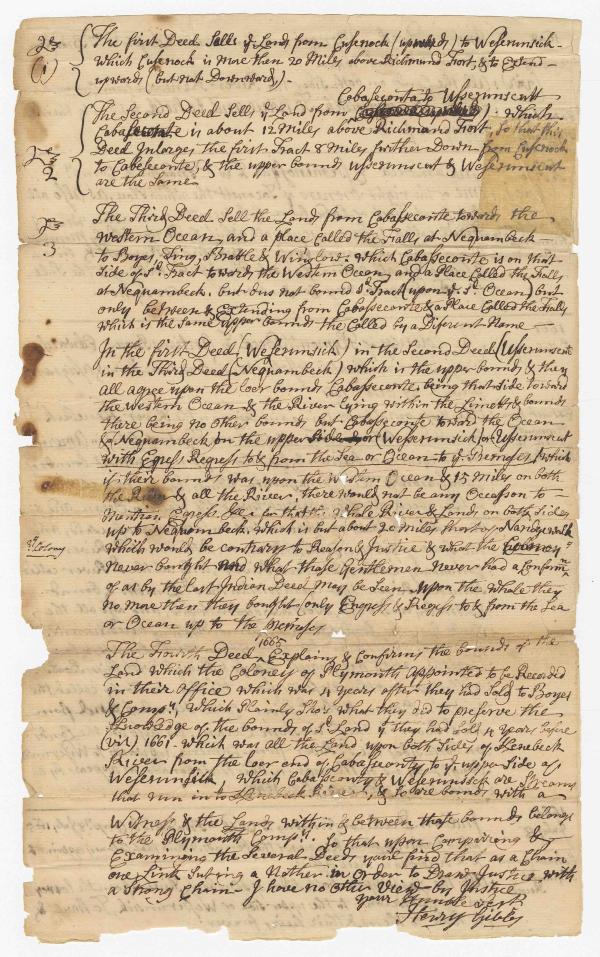 The first Deed Sells ye Lands from Cusenock (upwards) to Weserunsick -
which Cusenock is More than 20 Miles above Richmund Fort, & to Extend
upwards (but not Downwards) -
(1)
Cabaseconta to Usserunscutt
The Second Deed Sells ye Land from which
is about 12 Miles above Richmand Fort, So that this
Deed Inlarges the first Tract 8 Miles further Down from Cusenock
to Cabeseconte, & the upper bounds Usserunscut & Weserunsict
are the Same
2
The Third Deed Sell the Lands from Cabasseconte towards the
Western Ocean, and a place Called the Falls at Nequambeck -
to Boyes, Ting, Brattle & Winslow. which Cabasseconte is on that
Side of sd. Tract toward the Western Ocean and a Place Called the Falls
at Nequambeck. but dus not bound sd. Tract (upon ye sd. Ocean) but
only between & Extending from Cabasseconte & a Place Called the Falls
which is the Same upper bounds tho Called by a Diferent Name -
3
In the first Deed (Weserunsick) in the Second Deed (Usserunscutt
in the Third Deed (Nequambeck) which is the upper bounds & they
all agree upon the loer bounds Cabasseconte being that Side toward
the Western Ocean & the River lying within the Limets & bounds
there being no other bounds but Cabasseconte toward the Ocean
& Nequambeck on the upper Side or Weserunsick or Usserunscut
with Egress Regress to & from the Sea or Ocean to ye Premeses, which
if their bounds was upon the Western Ocean & 15 Miles on both
the River & all the River, there would not be any Occasson to -
Mention Egress &c. for that the whole River & Lands on both Sides
up to Nequambeck. which is but about 20 Miles
which would be contrary to Reason & Justice & what the Coloney
Colony
Never bought and what those Gentlemen Never had a Confirm
of as by the last Indian Deed May be Seen. upon the whole they
no more then they bought (only Engress & Regress to & from the Sea
or Ocean up to the Premeses
1665
The Fourth Deed Explains & Confirms the bounds of the
Land which the Coloney of Plymouth Appointed to be Recorded
in their Office which was 4 years after they had Sold to Boyes
& Compy. which Plainly Sho's what they did to preserve the
Knowledge of the bounds of sd. Land yt they had Sold 4 years before
(viz) 1661. which was all the Land upon both Sides of Kenebeck
River from the loer end of Cabasseconty to ye upper Side of
Weserunsick, which Cabasecounty & Weserunssck are Streams
that run in to Kenebeck River, & So are bounds with a
Witness & the Lands within & between those bounds belongs
to the Plymouth Compy. So that upon Comparing &
Examining the Several Deeds you'l find that as a Chain
one Link Puting a Nother in Order to Draw Justice with
a Strong Chain - I have no other View but Justice
your Humble Servt
Henry Gibbs